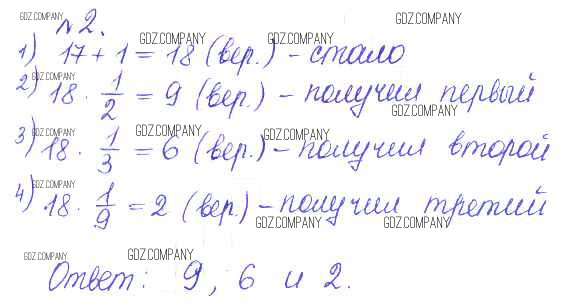 GDZ.COMPANY GDZ.COMPANY
№ 2.
GDZ.COMPANY GDZ.COMPANY
1) 17 + 1 = 18 (вер.) - стало
GDZ.COMPANY
2) 18 · 1/2 = 9 (вер.) - получил первый
GDZ.COMPANY
GDZ.COMPANY GDZ.COMPANY GDZ.COMPANY
3) 18 · 1/3 = 6 (вер.) - получил второй
GDZ.COMPANY
4) 18 · 1/9 = 2 (вер.) - получил третий
GDZ.COMPANY GDZ.COMPANY
GDZ.COMPANY GDZ.COMPANY
Ответ: 9, 6 и 2.